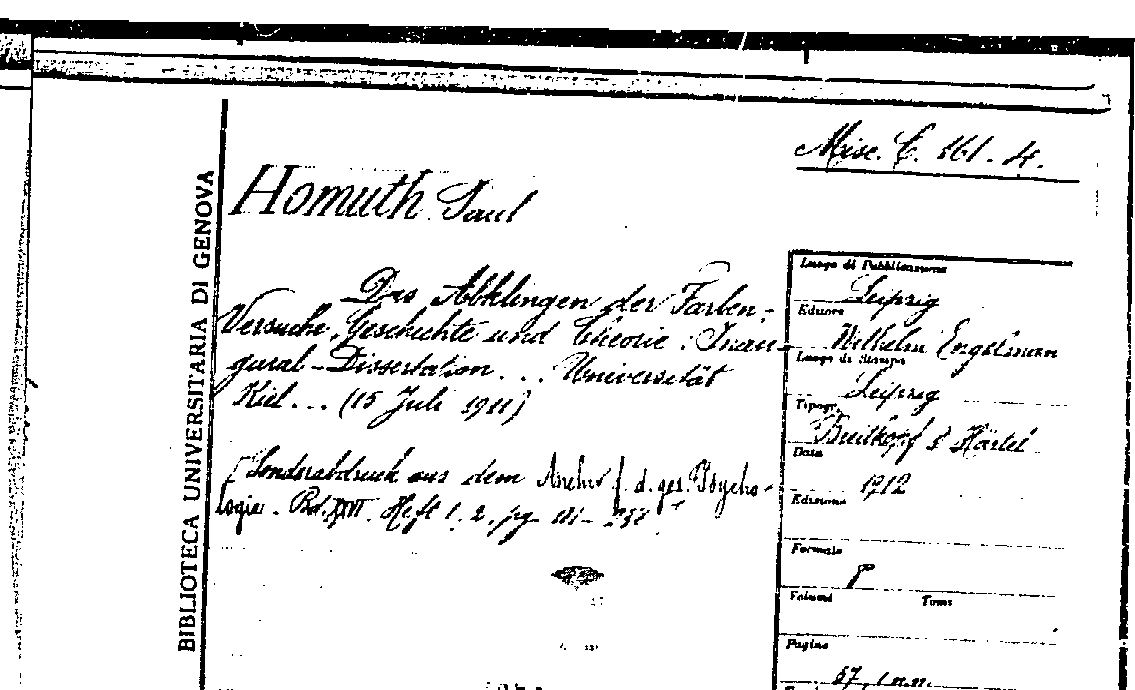 Misc. C. 161. 4.
BIBLIOTECA UNIVERSITARIA DI GENOVA
Homuth Paul
Das Abklingen der Farben-
Versuche, Geschichte und Theorie. Inau-
gural-Dissertation... Universität
Kiel... (15 Juli 1911)
[Sonderabdruck aus dem Archiv f. d. ges. Psycho-
logie. Bd. XXVI. Heft 1. 2, pg.
Luogo di Pubblicazione
Leipzig
Editore
Wilhelm Engelman
Luogo di Stampa
Leipzig
Tipogr.
Breitkopf & Härtel
Data
1912
Edizione
Formato
8
Volumi Tomi
Pagine
57, 1 n.n.